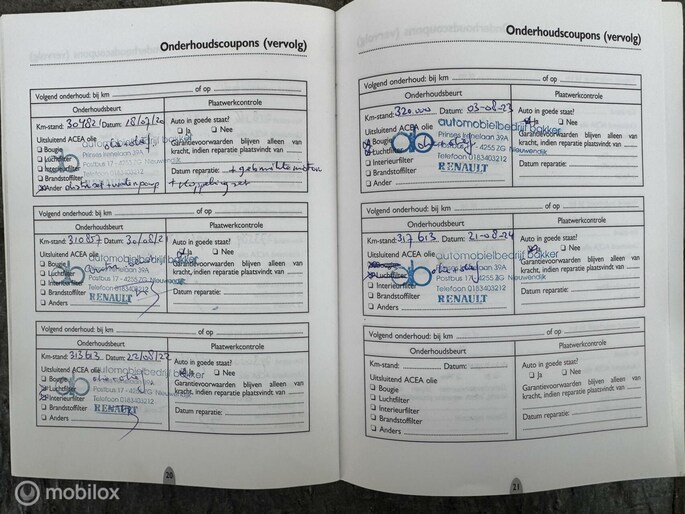 Onderhoudscoupons (vervolg)
Volgend onderhoud: bij km of op
Onderhoudsbeurt Plaatwerkcontrole
Km-stand: 304821 Datum: 28/07/20
Auto in goede staat?
Ja Nee
Uitsluitend ACEA olie
Bougie
Luchtfilter
Interieurfilter
Brandstoffilter
Ander
automobielbedrijf bakker
Prinses Irenelaan 39A
Postbus 17 - 4255 ZG Nieuwendijk
Telefoon 0183403212
Garantievoorwaarden blijven alleen van
kracht, indien reparatie plaatsvindt van
Datum reparatie:
Volgend onderhoud: bij km of op
Onderhoudsbeurt Plaatwerkcontrole
Km-stand: 310857 Datum: 30/08/21
Auto in goede staat?
Ja Nee
Uitsluitend ACEA olie
Bougie
Luchtfilter
Interieurfilter
Brandstoffilter
Anders
automobielbedrijf bakker
Irenelaan 39A
Postbus 17 - 4255 ZG Nieuwendijk
Telefoon 0183403212
RENAULT
Garantievoorwaarden blijven alleen van
kracht, indien reparatie plaatsvindt van
Datum reparatie:
Volgend onderhoud: bij km of op
Onderhoudsbeurt Plaatwerkcontrole
Km-stand: 313613 Datum: 22/08/22
Auto in goede staat?
Ja Nee
Uitsluitend ACEA olie
Bougie
Luchtfilter
Interieurfilter
Brandstoffilter
Anders
automobielbedrijf bakker
Prinses Irenelaan 39A
Postbus 17 - 4255 ZG Nieuwendijk
Telefoon 0183403212
RENAULT
Garantievoorwaarden blijven alleen van
kracht, indien reparatie plaatsvindt van
Datum reparatie:
20
Onderhoudscoupons (vervolg)
Volgend onderhoud: bij km of op
Onderhoudsbeurt Plaatwerkcontrole
Km-stand: 320.000 Datum: 03-08-23
Auto in goede staat?
Ja Nee
Uitsluitend ACEA olie
Bougie
Luchtfilter
Interieurfilter
Brandstoffilter
Anders
automobielbedrijf bakker
Prinses Irenelaan 39A
Postbus 17 - 4255 ZG Nieuwendijk
Telefoon 0183403212
RENAULT
Garantievoorwaarden blijven alleen van
kracht, indien reparatie plaatsvindt van
Datum reparatie:
Volgend onderhoud: bij km of op
Onderhoudsbeurt Plaatwerkcontrole
Km-stand: 317613 Datum: 21-08-24
Auto in goede staat?
Ja Nee
Uitsluitend ACEA olie
Luchtfilter
Interieurfilter
Brandstoffilter
Anders
automobielbedrijf bakker
Irenelaan 39A
Postbus 17 - 4255 ZG Nieuwendijk
Telefoon 0183403212
RENAULT
Garantievoorwaarden blijven alleen van
kracht, indien reparatie plaatsvindt van
Datum reparatie:
Volgend onderhoud: bij km of op
Onderhoudsbeurt Plaatwerkcontrole
Km-stand: Datum:
Auto in goede staat?
Ja Nee
Uitsluitend ACEA olie
Bougie
Luchtfilter
Interieurfilter
Brandstoffilter
Anders
Garantievoorwaarden blijven alleen van
kracht, indien reparatie plaatsvindt van
Datum reparatie:
21
mobilox